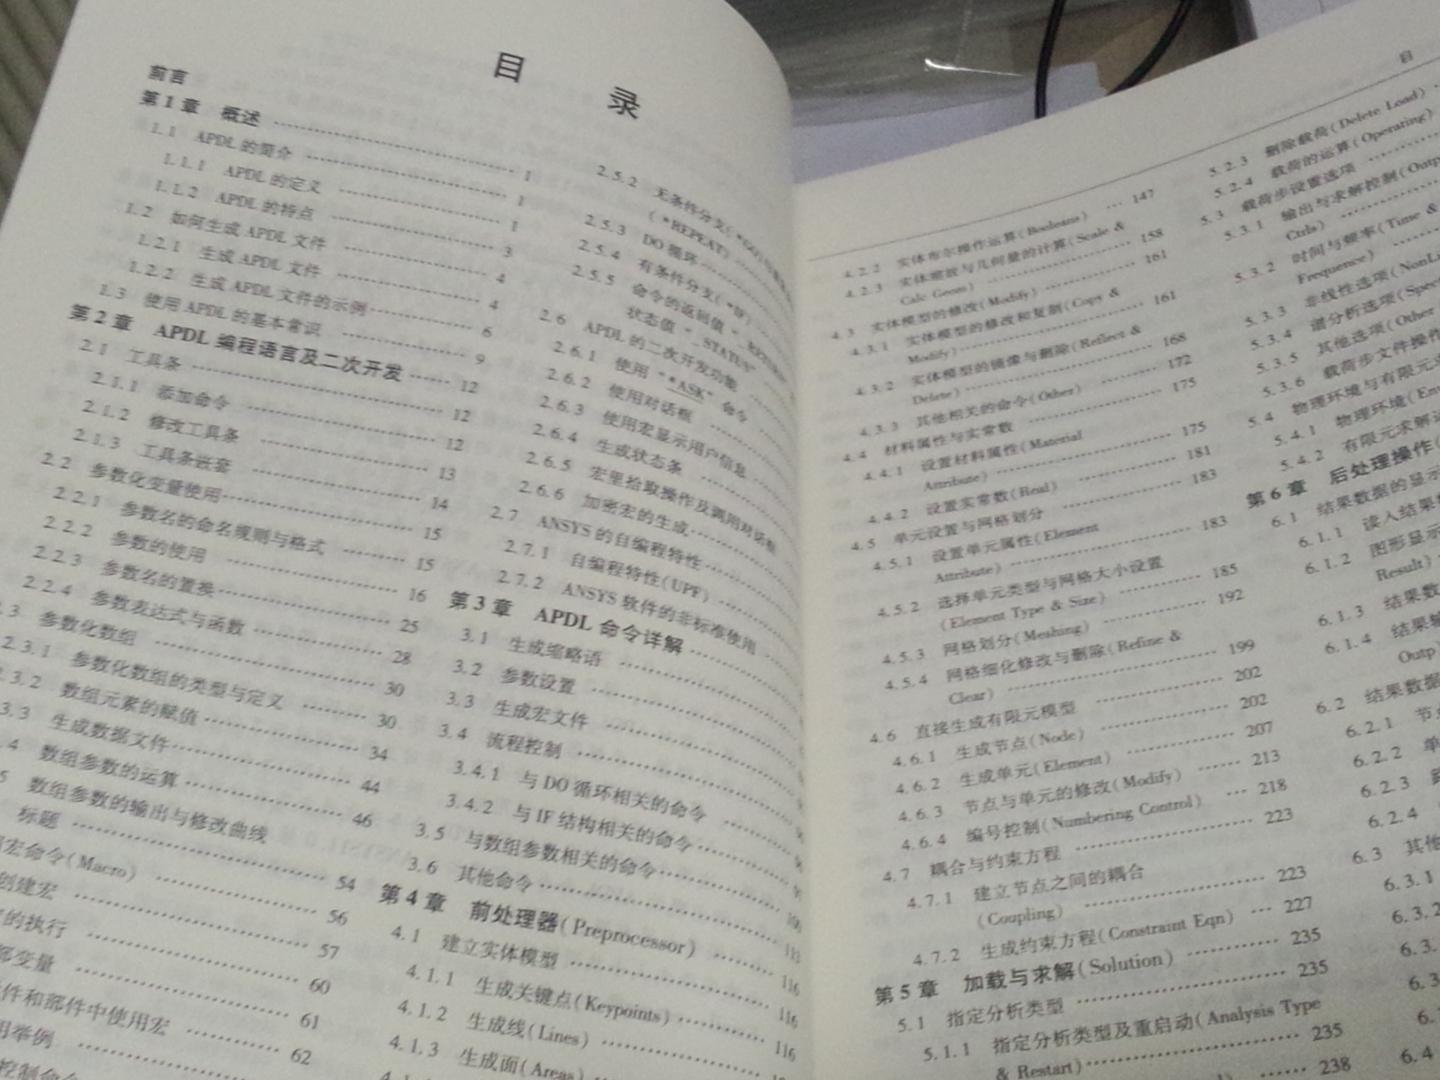 目 录
前言
第 1 章 概述 ………… 1
1.1 APDL 的简介 ………… 1
1.1.1 APDL 的定义 ………… 1
1.1.2 APDL 的特点 ………… 3
1.2 如何生成 APDL 文件 ………… 4
1.2.1 生成 APDL 文件 ………… 4
1.2.2 生成 APDL 文件的示例 ………… 6
1.3 使用 APDL 的基本常识 ………… 9
第 2 章 APDL 编程语言及二次开发 …… 12
2.1 工具条 ………… 12
2.1.1 添加命令 ………… 12
2.1.2 修改工具条 ………… 13
2.1.3 工具条嵌套 ………… 14
2.2 参数化变量使用 ………… 15
2.2.1 参数名的命名规则与格式 ………… 15
2.2.2 参数的使用 ………… 16
2.2.3 参数名的置换 ………… 25
2.2.4 参数表达式与函数 ………… 28
.3 参数化数组 ………… 30
2.3.1 参数化数组的类型与定义 ……… 30
.3.2 数组元素的赋值 ………… 34
3.3 生成数据文件 ………… 44
.4 数组参数的运算 ………… 46
5 数组参数的输出与修改曲线
标题 ………… 54
宏命令(Macro) ………… 56
创建宏 ………… 57
的执行 ………… 60
部变量 ………… 61
件和部件中使用宏 ……… 62
用举例
2.5.2 无条件分支(*GO)
(*REPEAT)
2.5.3 DO 循环
2.5.4 有条件分支(*IF)
2.5.5 命令的返回值
状态值 "_STATUS"
2.6 APDL 的二次开发功能
2.6.1 使用 "*ASK" 命令
2.6.2 使用对话框
2.6.3 使用宏显示用户信息
2.6.4 生成状态条
2.6.5 宏里拾取操作及调用对话框
2.6.6 加密宏的生成
2.7 ANSYS 的自编程特性
2.7.1 自编程特性(UPF)
2.7.2 ANSYS 软件的非标准使用
第 3 章 APDL 命令详解
3.1 生成缩略语
3.2 参数设置
3.3 生成宏文件
3.4 流程控制
3.4.1 与 DO 循环相关的命令
3.4.2 与 IF 结构相关的命令
3.5 与数组参数相关的命令
3.6 其他命令
第 4 章 前处理器(Preprocessor)
4.1 建立实体模型 ………… 116
4.1.1 生成关键点(Keypoints) ……… 116
4.1.2 生成线(Lines) ………… 116
4.1.3 生成面(Areas)
目
4.2.2 实体布尔操作运算(Booleans) … 147
4.2.3 实体缩放与几何量的计算(Scale &
Calc Geom) ………… 158
4.3 实体模型的修改(Modify) ………… 161
4.3.1 实体模型的修改和复制(Copy &
Modify) ………… 161
4.3.2 实体模型的镜像与删除(Reflect &
Delete) ………… 168
4.3.3 其他相关的命令(Other) ………… 172
4.4 材料属性与实常数 ………… 175
4.4.1 设置材料属性(Material
Attribute) ………… 175
4.4.2 设置实常数(Real) ………… 181
4.5 单元设置与网格划分 ………… 183
4.5.1 设置单元属性(Element
Attribute) ………… 183
4.5.2 选择单元类型与网格大小设置
(Element Type & Size) ………… 185
4.5.3 网格划分(Meshing) ………… 192
4.5.4 网格细化修改与删除(Refine &
Clear) ………… 199
4.6 直接生成有限元模型 ………… 202
4.6.1 生成节点(Node) ………… 202
4.6.2 生成单元(Element) ………… 207
4.6.3 节点与单元的修改(Modify) …… 213
4.6.4 编号控制(Numbering Control) … 218
4.7 耦合与约束方程 ………… 223
4.7.1 建立节点之间的耦合
(Coupling) ………… 223
4.7.2 生成约束方程(Constraint Eqn) … 227
第 5 章 加载与求解(Solution) ………… 235
5.1 指定分析类型 ………… 235
5.1.1 指定分析类型及重启动(Analysis Type
& Restart) ………… 235
…… 238
5.2.3 删除载荷(Delete Load)
5.2.4 载荷的运算(Operating)
5.3 载荷步设置选项
5.3.1 输出与求解控制(Outp
Ctrls)
5.3.2 时间与频率(Time &
Frequence)
5.3.3 非线性选项(NonLi
5.3.4 谱分析选项(Spect
5.3.5 其他选项(Other
5.3.6 载荷步文件操作
5.4 物理环境与有限元求
5.4.1 物理环境(Env
5.4.2 有限元求解运
第 6 章 后处理操作(
6.1 结果数据的显示
6.1.1 读入结果
6.1.2 图形显示
Result)
6.1.3 结果数
6.1.4 结果输
Outp
6.2 结果数据
6.2.1 节
6.2.2 单
6.2.3
6.2.4
6.3 其他
6.3.1
6.3.2
6.3.
6.3.
6.4